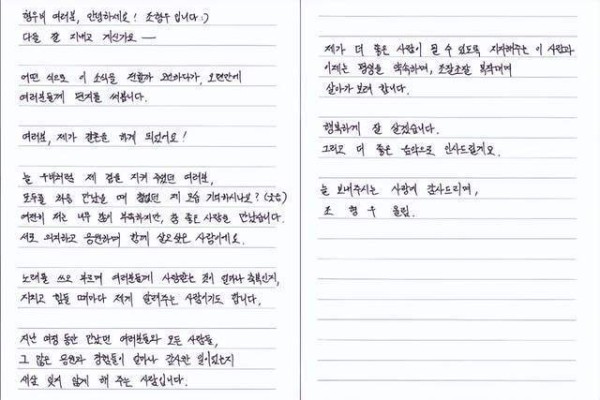 형우비 여러분, 안녕하세요! 조형우 입니다 :)
다들 잘 지내고 계신가요 —
어떤 식으로 이 소식을 전할까 고민하다가, 오랜만에
여러분들께 편지를 써봅니다.
여러분, 제가 결혼을 하게 되었어요!
늘 한결처럼 제 곁을 지켜 주었던 여러분,
모두를 처음 만났을 때 했었던 제 모습 기억하시나요? (웃음)
여전히 저는 너무 많이 부족하지만, 참 좋은 사람을 만났습니다.
서로 의지하고 응원하며 함께 살고싶은 사람이에요.
노래를 쓰고 부르며 여러분들께 사랑받는 것이 얼마나 축복인지,
지치고 힘들 때마다 저에게 알려주는 사람이기도 합니다.
지난 여정 동안 만났던 여러분들과 모든 사람들,
그 많은 응원과 경험들이 얼마나 감사한 일이었는지
새삼 잊지 않게 해 주는 사람입니다.
제가 더 좋은 사람이 될 수 있도록 지지해주는 이 사람과
이제는 평생을 약속하며, 조잘조잘 복작대며
살아가 보려 합니다.
행복하게 잘 살겠습니다.
그리고 더 좋은 음악으로 인사드릴게요.
늘 보내주시는 사랑에 감사드리며,
조 형 우 올림.